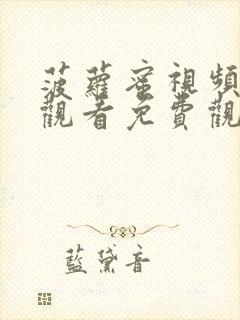 菠蘿蜜視頻
觀看免費觀
藍黛音